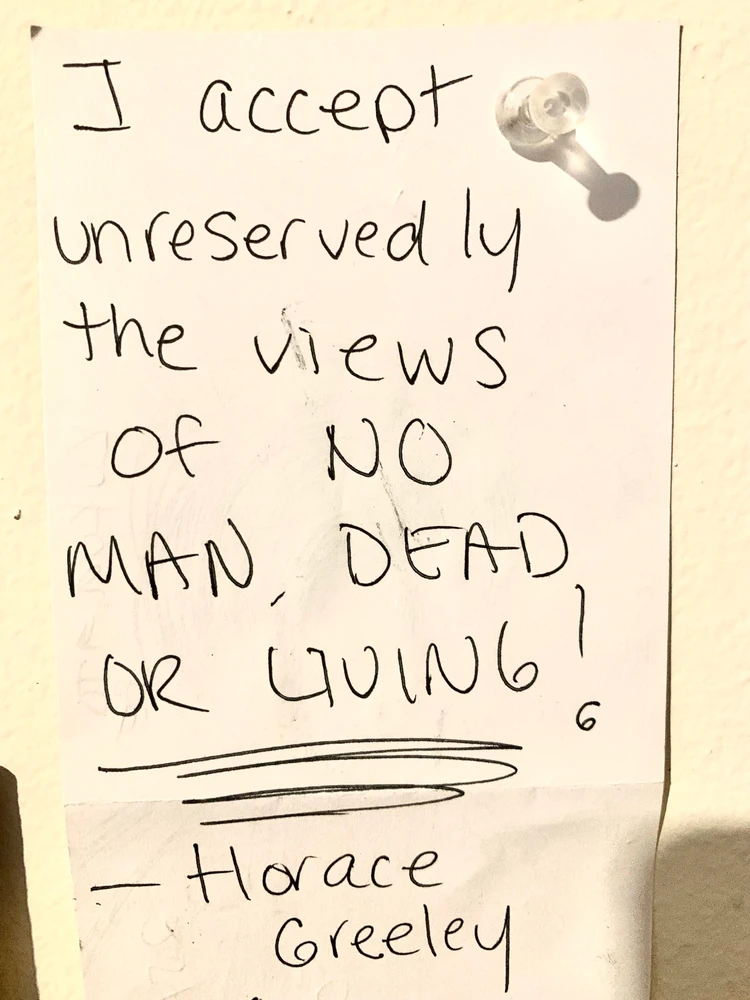 I accept
unreservedly
the views
of NO
MAN, DEAD
OR LIVING!
— Horace
Greeley